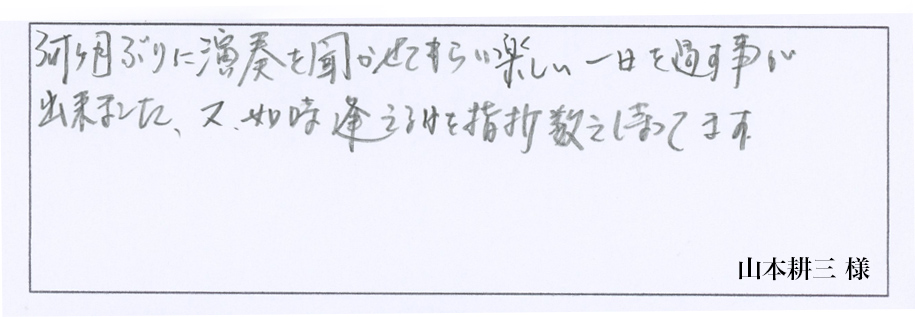 ヶ月ぶりに演奏を聞かせてもらい楽しい一日を過す事が
出来ました、又、時逢えるを指折数え待ってます
山本耕三 様